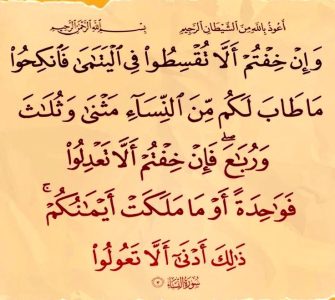 أعوذ بالله من الشيطان الرجيم بسم الله الرحمن الرحيم
وَإِنْ خِفْتُمْ أَلَّا تُقْسِطُوا۟ فِى ٱلْيَتَـٰمَىٰ فَٱنكِحُوا۟
مَا طَابَ لَكُم مِّنَ ٱلنِّسَآءِ مَثْنَىٰ وَثُلَـٰثَ
وَرُبَـٰعَ ۖ فَإِنْ خِفْتُمْ أَلَّا تَعْدِلُوا۟
فَوَٰحِدَةً أَوْ مَا مَلَكَتْ أَيْمَـٰنُكُمْ ۚ
ذَٰلِكَ أَدْنَىٰٓ أَلَّا تَعُولُوا۟
سورة النساء